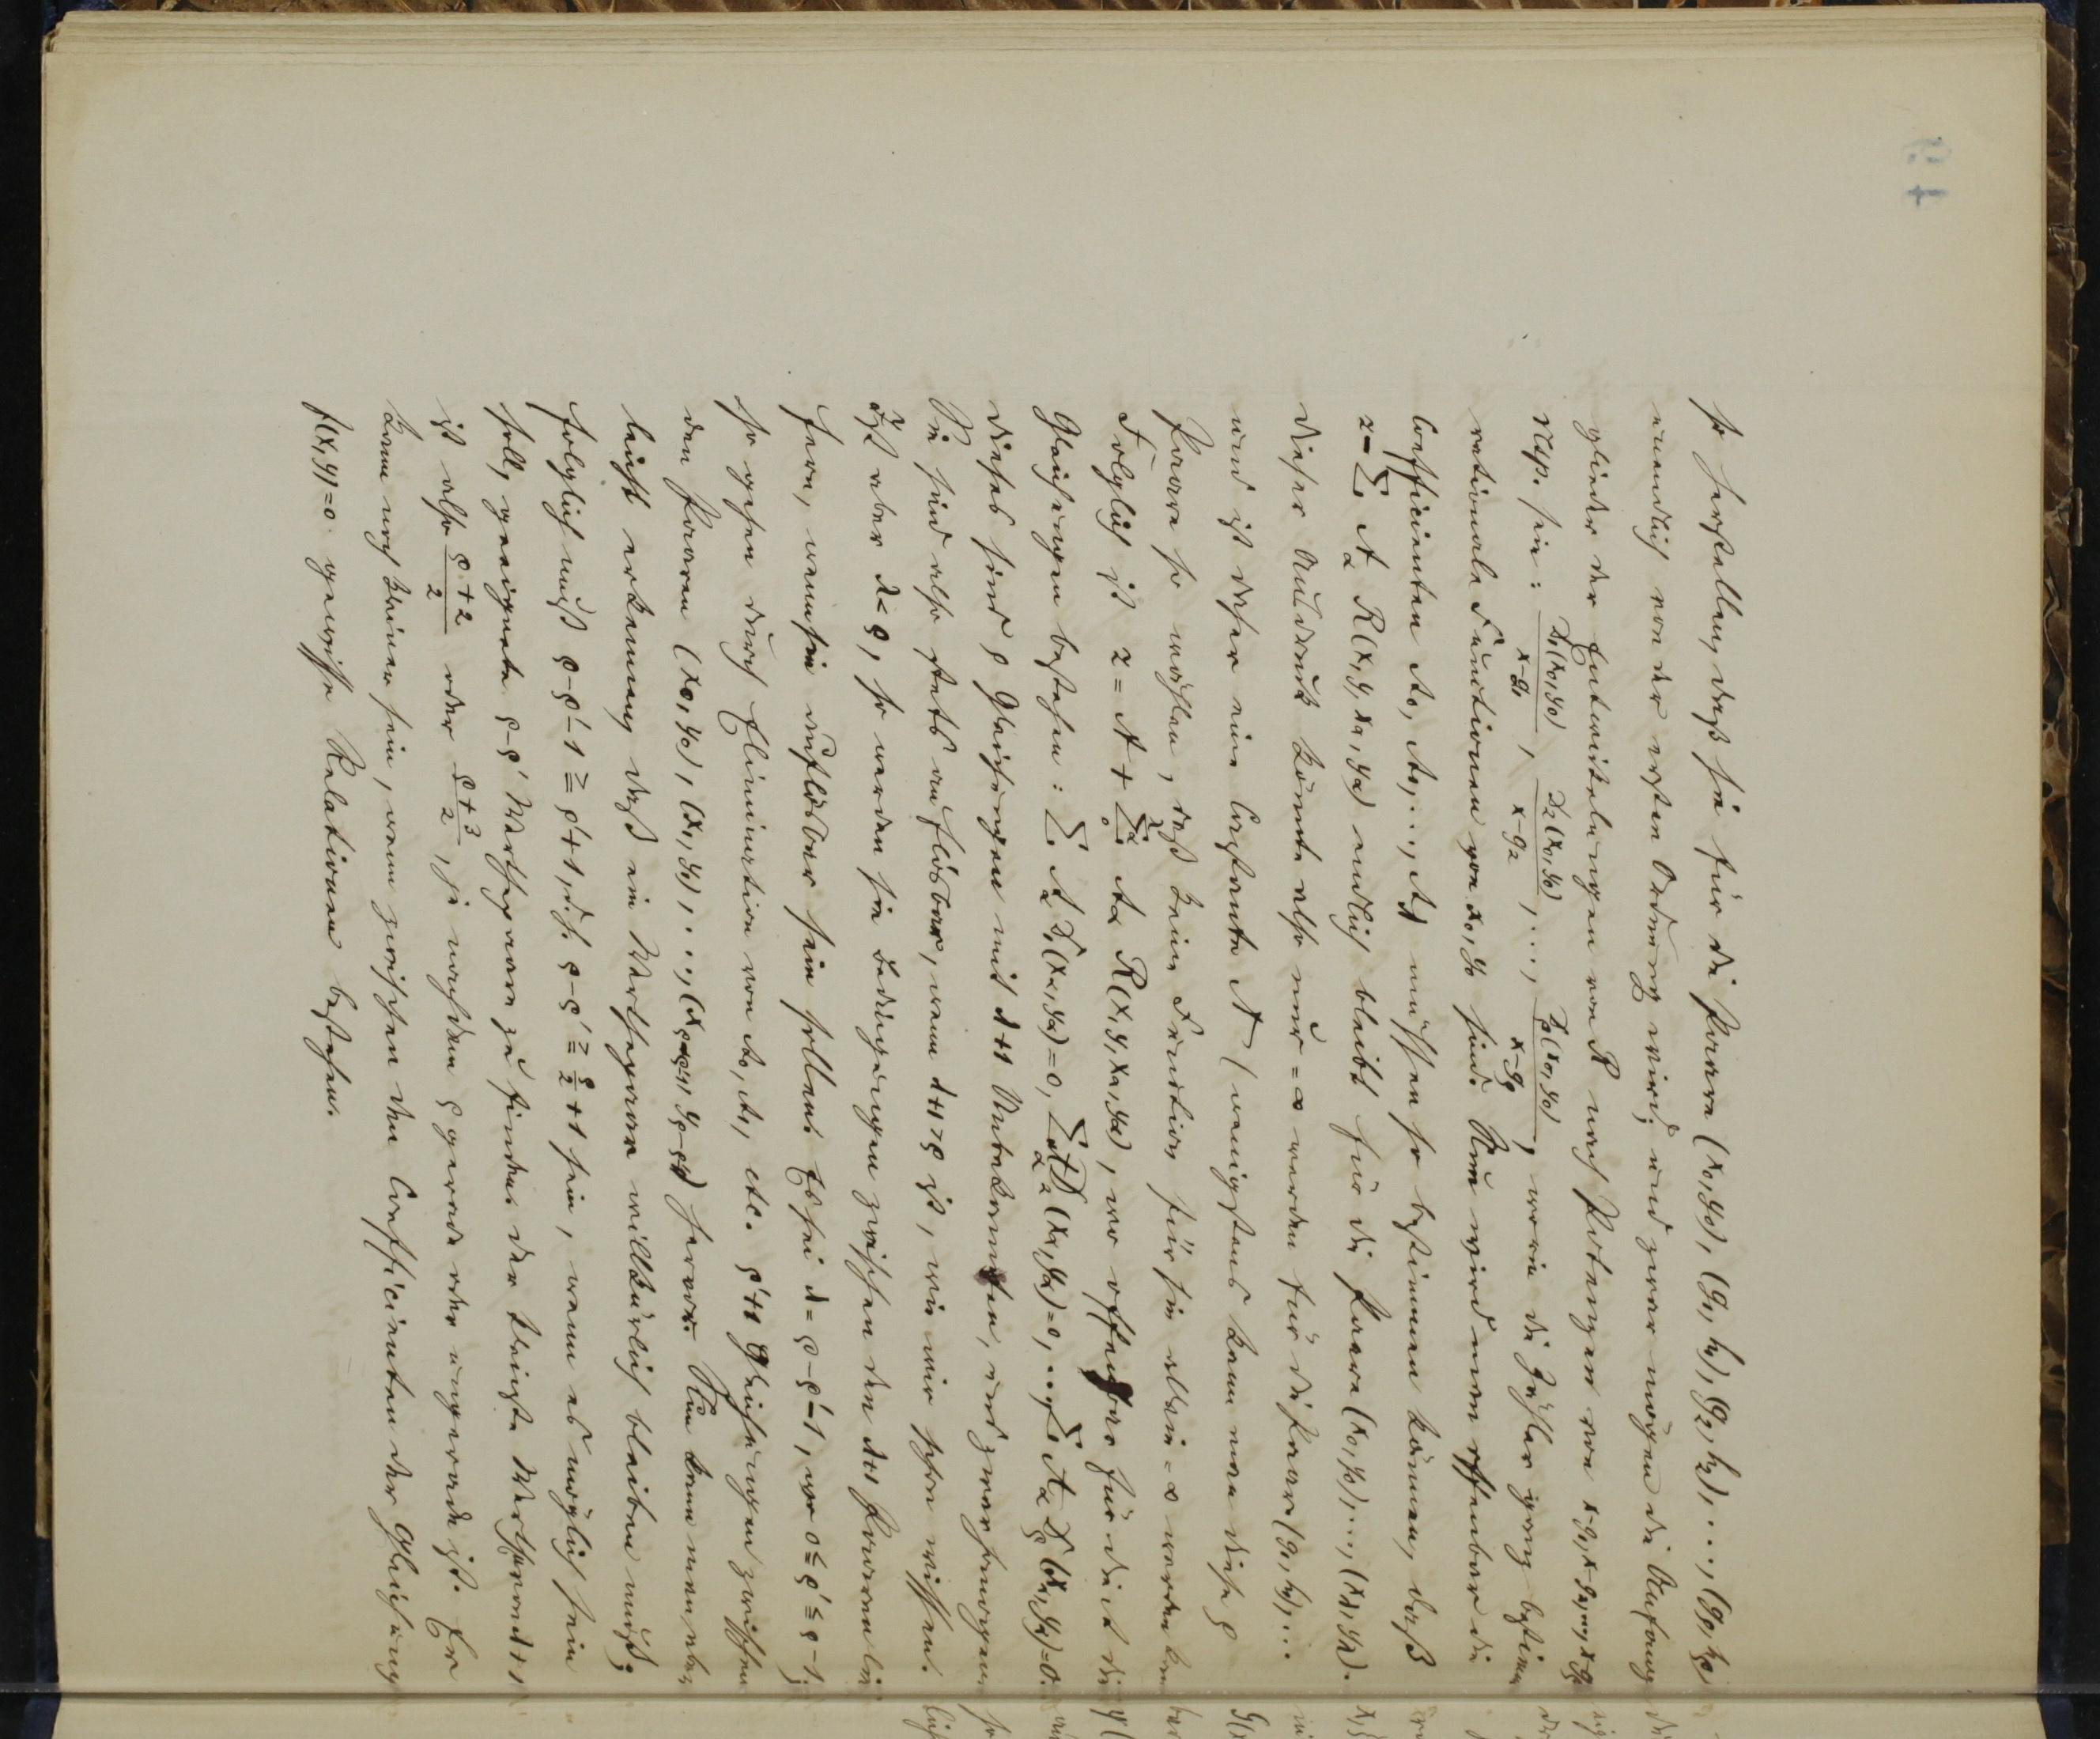 so herstellen, daß sie für die Paare (x₀,y₀), (g₁,h₁), (g₂,h₂), ..., (gρ,hρ)
unendlich von der ersten Ordnung wird; und zwar mögen die Anfangs
glieder der Entwickelungen von R nach Potenzen von x-g₁, x-g₂, ..., x-gρ
resp. sein: F₁(x₀,y₀)/(x-g₁), F₂(x₀,y₀)/(x-g₂), ..., Fρ(x₀,y₀)/(x-gρ), worin die Zähler ganz bestimmte
rationale Functionen von x₀, y₀ sind. Nun wird man offenbar die
Coefficienten A₀, A₁, ..., A_λ müssen so bestimmen können, daß
z - Σ_α A_α R(x,y,x_α,y_α) endlich bleibt für die Paare (x₀,y₀), ..., (x_λ,y_λ).
Dieser Ausdruck könnte also nur = ∞ werden für die Paare (g₁,h₁), ...
und ist daher eine Constante A (wenigstens kann man diese ρ
Paare so wählen, daß keine Function für sie allein = ∞ werden kann
Folglich ist z = A + Σ_α A_α R(x,y,x_α,y_α), wo offenbar für die A die
Gleichungen bestehen: Σ_α A_α F₁(x_α,y_α)=0, Σ_α A_α F₂(x_α,y_α)=0, ..., Σ A_α Fρ(x_α,y_α)=0.
Dieses sind ρ Gleichungen mit λ+1 Unbekannten, und zwar homogene
Sie sind also stets auflösbar, wenn λ+1>ρ ist, wie wir schon wissen.
Ist aber λ<ρ, so werden sie Bedingungen zwischen den λ+1 Paaren lie
fern, wenn sie auflösbar sein sollen. Es sei λ = ρ-ρ'-1, wo 0≦ρ'≦ρ-1;
so gehen durch Elimination von A₀, A₁, etc. ρ'+1 Gleichungen zwischen
den Paaren (x₀,y₀), (x₁,y₁), ..., (x_{ρ-ρ'-1}, y_{ρ-ρ'-1}) hervor. Nun kann man aber
leicht erkennen, daß ein Werthepaar willkürlich bleiben muß;
folglich muß ρ-ρ'-1 ≧ ρ'+1, d.h. ρ-ρ' ≧ ρ/2 +1 sein, wenn es möglich sein
soll, geeignete ρ-ρ' Werthepaare zu finden. Der kleinste Werth von λ+1
ist also (ρ+2)/2 oder (ρ+3)/2, je nachdem ρ gerade oder ungerade ist. Er
kann noch kleiner sein, wenn zwischen den Coefficienten der Gleichung
f(x,y)=0 gewisse Relationen bestehen.